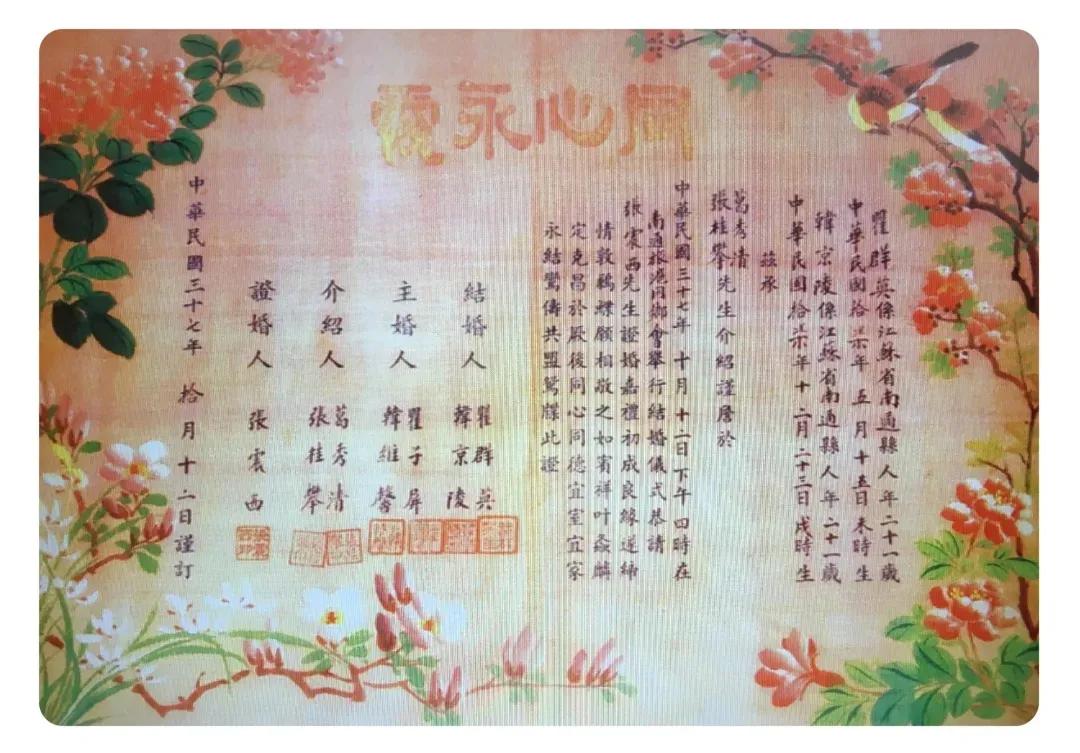 同心永愛
瞿群英係江蘇省南通縣人年二十一歲
中華民國拾柒年五月十五日未時生
韓京陵係江蘇省南通縣人年二十一歲
中華民國拾柒年十二月二十三日戌時生
茲承
葛秀清
張桂攀先生介紹謹詹於
中華民國三十七年十月十二日下午四時在
南通旅滬同鄉會舉行結婚儀式恭請
張震西先生證婚嘉禮初成良緣遂締
情敦鶼鰈願相敬之如賓祥叶螽麟
定克昌於厥後同心同德宜室宜家
永結鸞儔共盟鴛牒此證
結婚人 瞿群英
韓京陵
主婚人 瞿子屏
韓維馨
介紹人 葛秀清
張桂攀
證婚人 張震西
中華民國三十七年拾月十二日謹訂